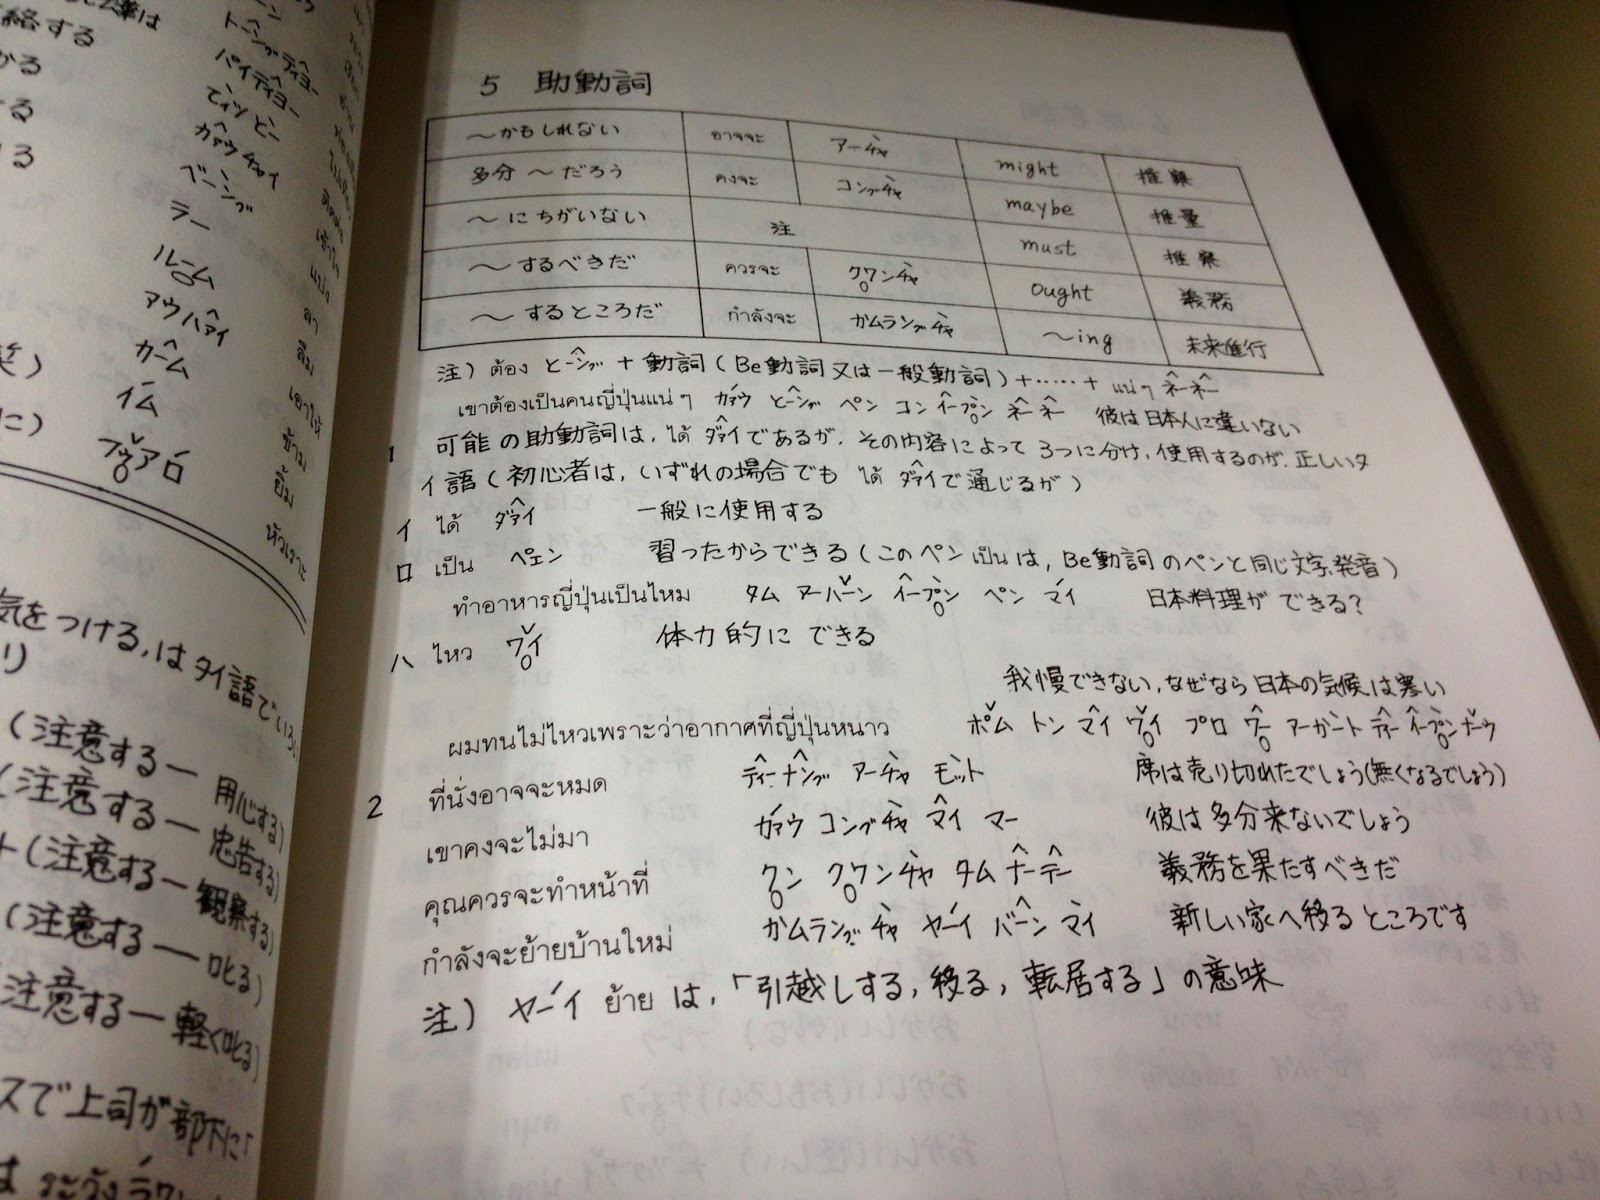 絡する
かる
する
する
トーングディヨー
パイディヨー
ベーング
ラー
ルーム
アウハァイ
カーム
イム
เข้าใจ
แบ่ง
ลา
ลืม
เอาให้
ข้าม
ยิ้ม
หัวเราะ
気をつける,はタイ語で
(注意する—用心する)
(注意する—忠告する)
(注意する—観察する)
(注意する—叱る)
注意する—軽く叱る)
スで上司が部下に「
5 助動詞
〜かもしれない อาจจะ アーチャ might 推察
多分〜だろう คงจะ コングチャ maybe 推量
〜にちがいない 注 must 推察
〜するべきだ ควรจะ クワンチャ ought 義務
〜するところだ กำลังจะ ガムラングチャ 〜ing 未来進行
注) ต้อง トーング + 動詞 (Be動詞又は一般動詞) +……+ แน่ๆ ネーネー
เขาต้องเป็นคนญี่ปุ่นแน่ๆ カァウ トーング ペン コン イープン ネー ネー 彼は日本人に違いない
1 可能の助動詞は, ได้ ダァイであるが, その内容によって3つに分け, 使用するのが, 正しいタ
イ語 (初心者は, いずれの場合でも ได้ ダァイで通じるが)
イ ได้ ダァイ 一般に使用する
ロ เป็น ペェン 習ったからできる (このペン เป็น は, Be動詞のペンと同じ文字,発音)
ทำอาหารญี่ปุ่นเป็นไหม タム アーハーン イープン ペン マイ 日本料理ができる?
ハ ไหว ワイ 体力的にできる
我慢できない, なぜなら日本の気候は寒い
ผมทนไม่ไหวเพราะว่าอากาศที่ญี่ปุ่นหนาว ポム トン マイ ワイ プロ ワー アーガート ティー イープン ナーウ
2 ที่นั่งอาจจะหมด ティーナング アーチャ モット 席は売り切れたでしょう(無くなるでしょう)
เขาคงจะไม่มา カァウ コングチャ マイ マー 彼は多分来ないでしょう
คุณควรจะทำหน้าที่ クン クワンチャ タム ナーテー 義務を果たすべきだ
กำลังจะย้ายบ้านใหม่ ガムラングチャ ヤーイ バーン マイ 新しい家へ移るところです
注) ヤーイ ย้าย は,「引越しする, 移る, 転居する」の意味